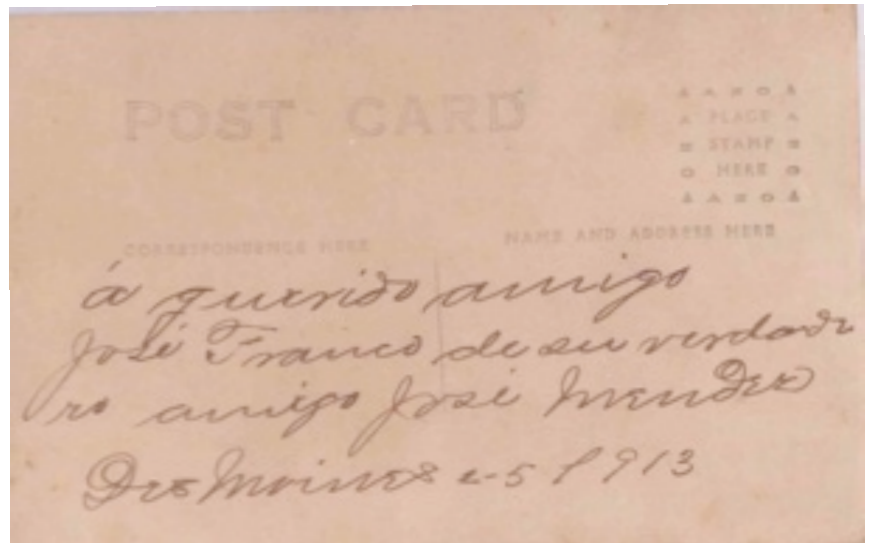 POST CARD
AZOA
PLACE
STAMP
HERE
AZOA
CORRESPONDENCE HERE
NAME AND ADDRESS HERE
á querido amigo
José Franco de su verdade
ro amigo José Mendez
Des Moines 2-5 1913